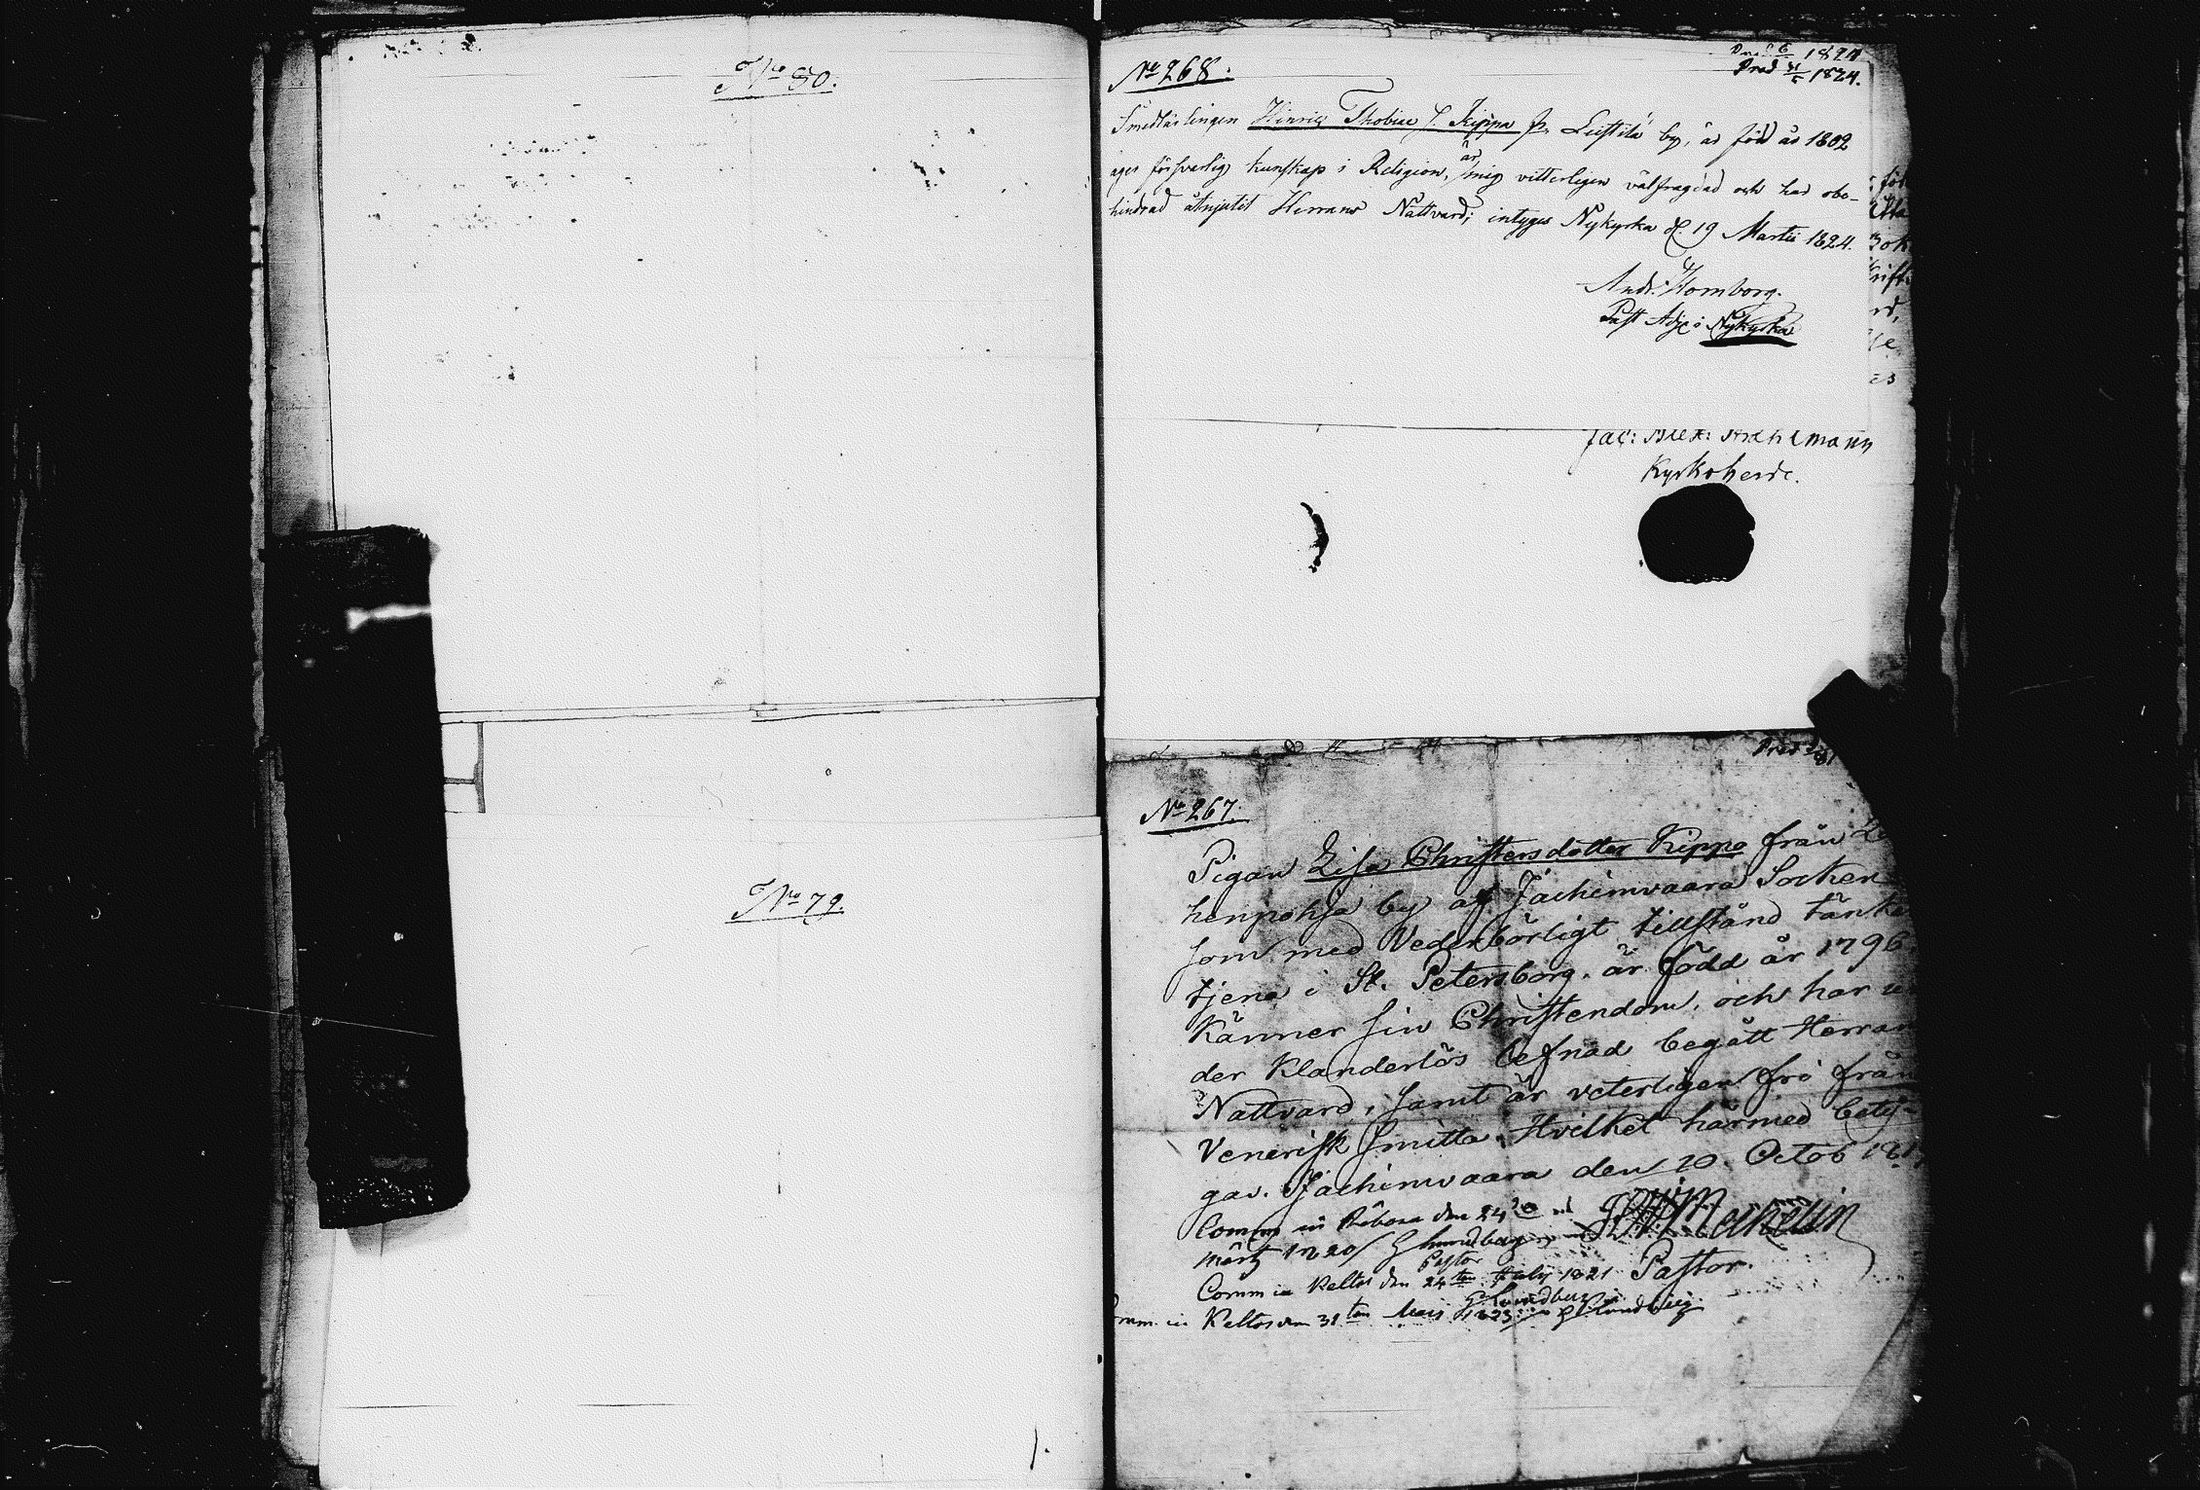 No 80.
No 79.
No 268.
1824
Præs 31/5 1824.
Smedlärlingen Hinric Thobiæ S. Kippa fr. Luftila by, är född år 1802
äger försvarlig kunskap i Religion, är mig vitterligen välfrägdad och har obe-
hindrad åtnjutit Herrans Nattvard; intygas Nykyrka d. 19 Martii 1824.
And. Homborg.
Past Adj: i Nykyrka
Jac: Alex: Strehlmann
Kyrkoherde.
No 267.
Pigan Lisa Christersdotter Kippo från
henpohja by af Jachimvaara Socken
som med Vederbörligt tillstånd tänker
tjena i St. Petersborg. är född år 1796.
Känner sin Christendom, och har un
der klanderlös lefnad begått Herran
Nattvard, samt är veterligen fri från
Venerisk smitta, Hvilket härmed bety-
gas. Jachimvaara den 20. Octob
Comm in Räbova den 24
Märtz 1820 G Lundberg
Pastor
Comm in Keltos den 24ten July 1821 Pastor.
G Lundberg
Comm. in Keltos den 31ten Maii 1823 G Lundberg